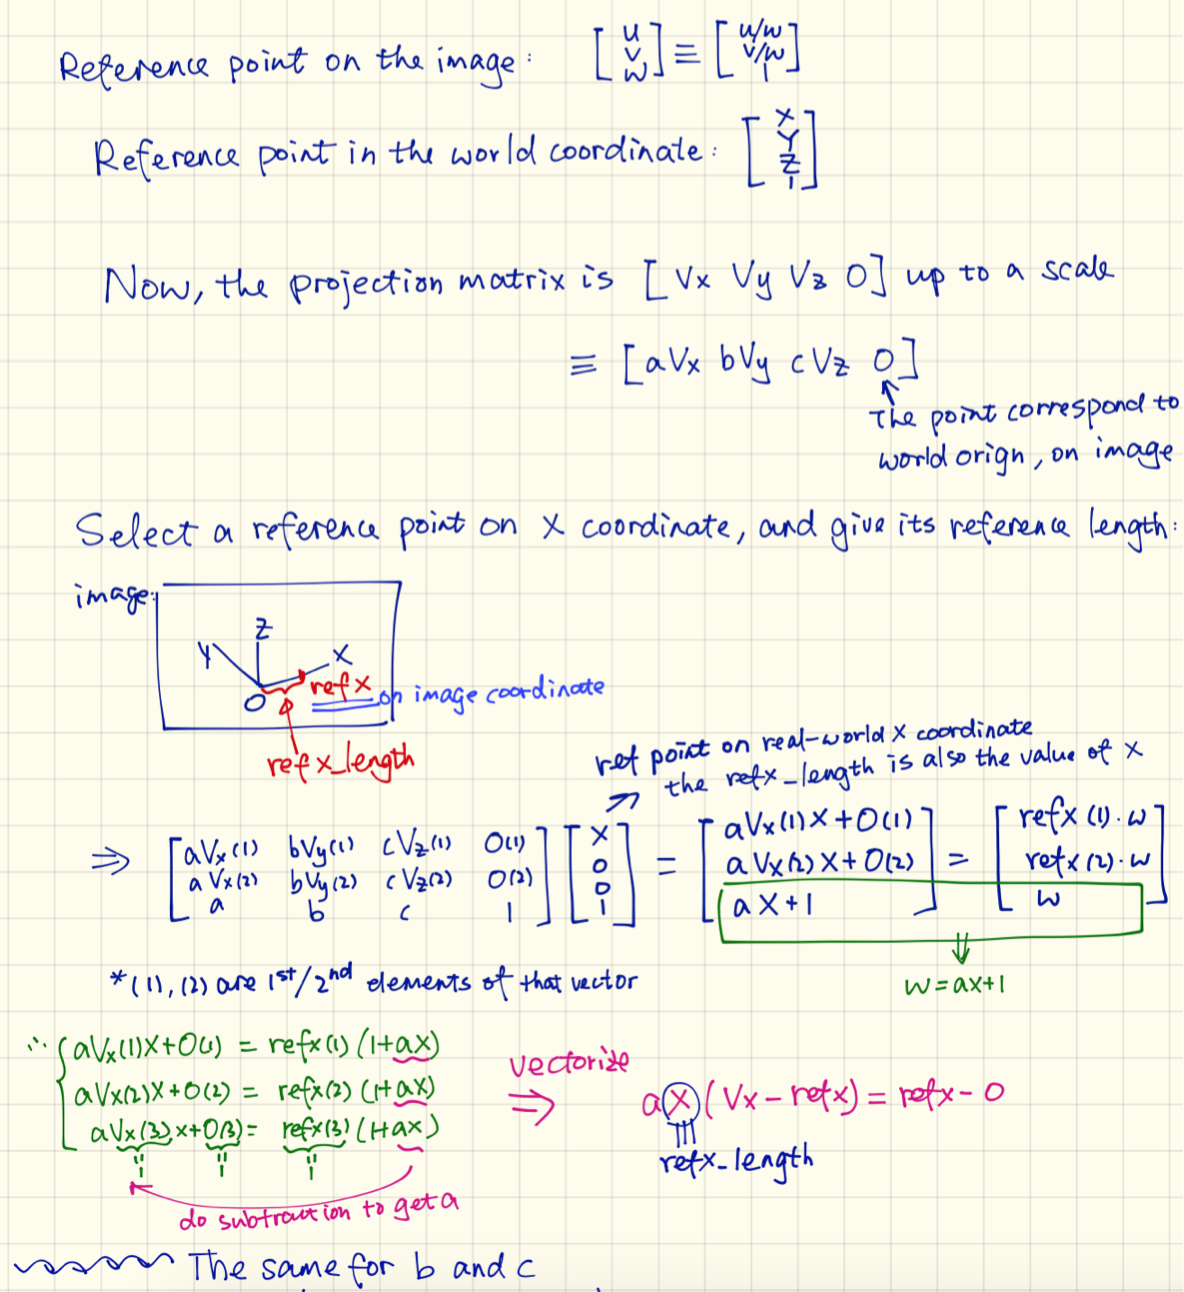 Reference point on the image: [u v w] ≡ [u/w v/w 1]
Reference point in the world coordinate: [X Y Z 1]
Now, the projection matrix is [Vx Vy Vz O] up to a scale
≡ [aVx bVy cVz O]
The point correspond to
world orign, on image
Select a reference point on X coordinate, and give its reference length:
image:
Z
Y X
O refx on image coordinate
refx_length
ref point on real-world X coordinate
the refx_length is also the value of X
⇒ [aVx(1) bVy(1) cVz(1) O(1)] [X] = [aVx(1)X+O(1)] = [refx(1)·w]
[aVx(2) bVy(2) cVz(2) O(2)] [0] [aVx(2)X+O(2)] [refx(2)·w]
[a b c 1] [0 1] [aX+1] [w]
w=ax+1
*(1),(2) are 1st/2nd elements of that vector
∴ {aVx(1)X+O(1) = refx(1)(1+aX)
aVx(2)X+O(2) = refx(2)(1+aX)
aVx(3)x+O(3) = refx(3)(1+ax)
1 1 1
do subtraction to get a
vectorize
⇒ aX(Vx-refx) = refx-O
refx_length
The same for b and c